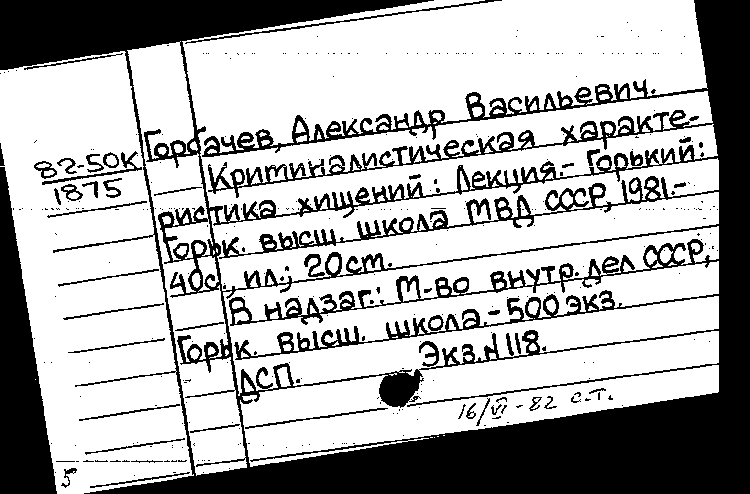 Горбачев, Александр Васильевич.
82-50К
1875
Криминалистическая характе-
ристика хищений: Лекция.- Горький:
Горьк. высш. школа МВД СССР, 1981.-
40с., ил.; 20ст.
В надзаг.: М-во внутр. дел СССР,
Горьк. высш. школа.- 500 экз.
ДСП. Экз.N118.
16/VI-82 с.т.
5